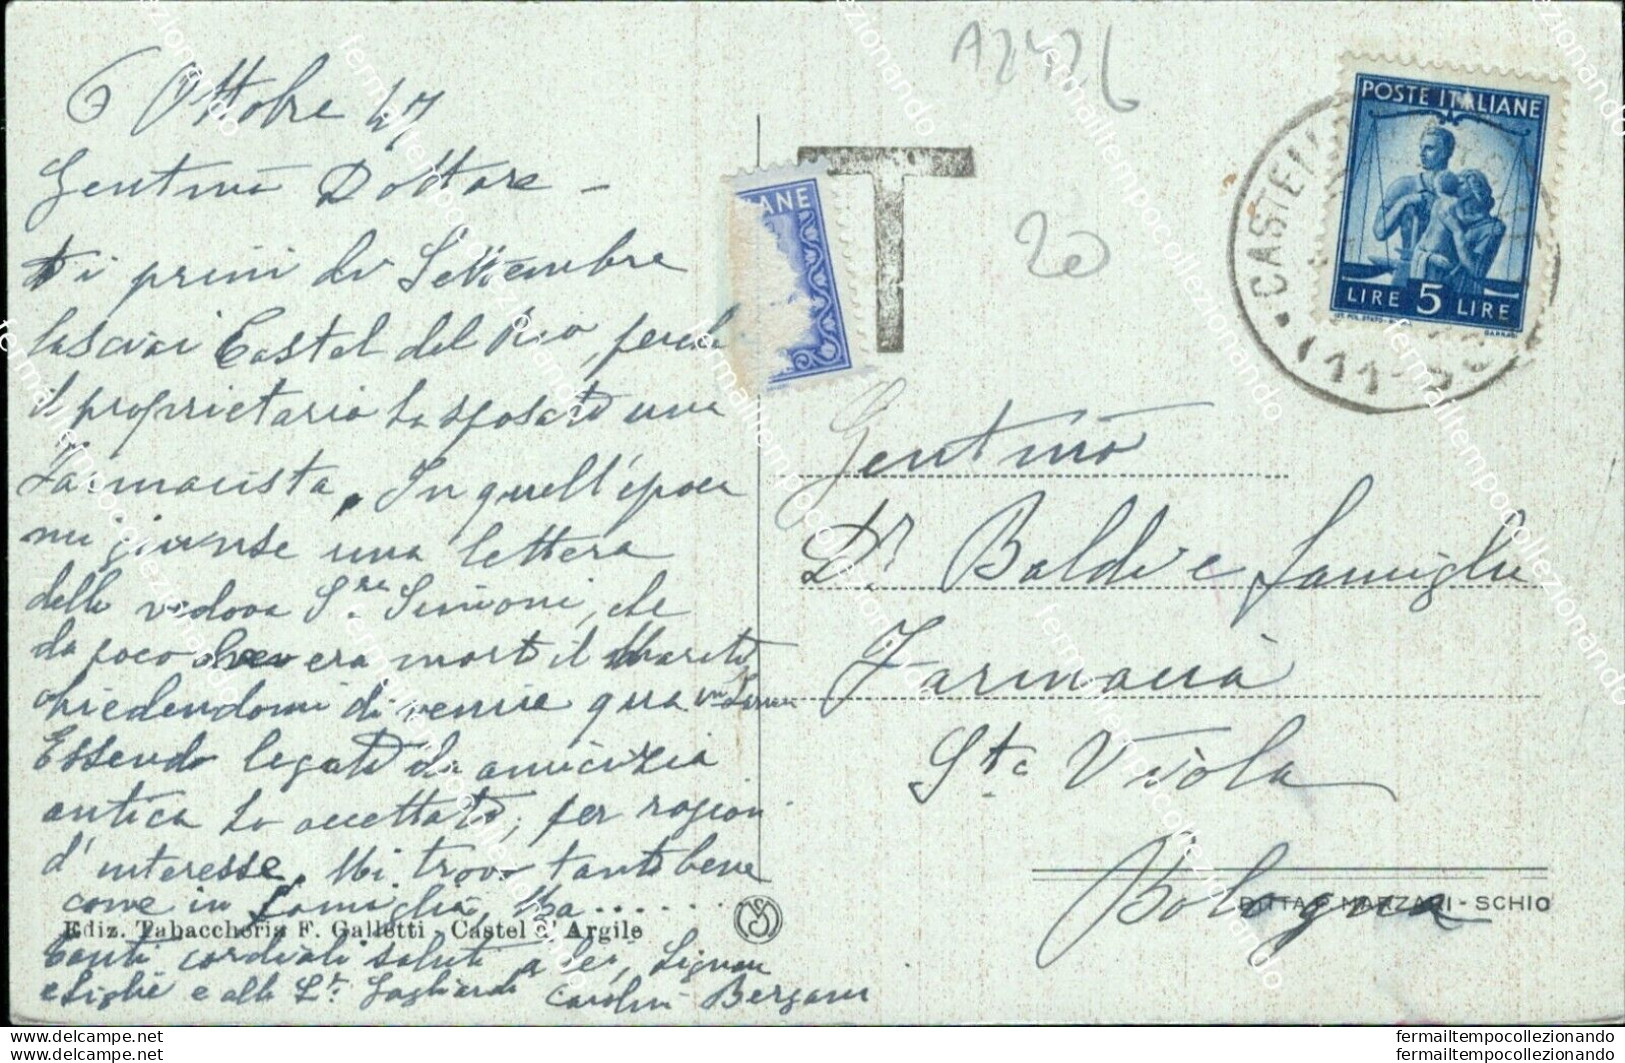 A2426
6 Ottobre 47
Gentmo Dottore -
i primi di Settembre
lasciai Castel del Rio, perchè
il proprietario ha sposato una
Farmacista. In quell'epoca
mi giunse una lettera
della vedova S.ra Simioni, che
da poco era morto il Marito
chiedendomi di venire qua in
Essendo legato da amicizia
antica ho accettato, per ragioni
d'interesse. Mi trovo tanto bene
come in famiglia, Ma ......
Ediz. Tabaccheria F. Galletti - Castel d'Argile
Tanti cordiali saluti a lei, Signora
e figlie e alla Gagliardi Carolina Bergami
T
20
ANE
POSTE ITALIANE
LIRE 5 LIRE
CASTELL
Gentmo
Dr. Baldi e famiglia
Farmacia
Sta Viola
Bologna
DITTA P. MARZARI - SCHIO
fermailtempocollezionando
fermailtempocollezionando
https://www.delcampe.net
https://www.delcampe.net
fermailtempocollezionando
fermailtempocollezionando